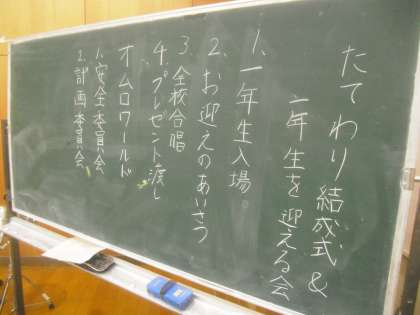 たてわり結成式&
一年生を迎える会
1、一年生入場。
2、お迎えのあいさつ
3、全校合唱
4、プレゼント渡し
オムロワールド
1.安全委員会
2.計画委員会